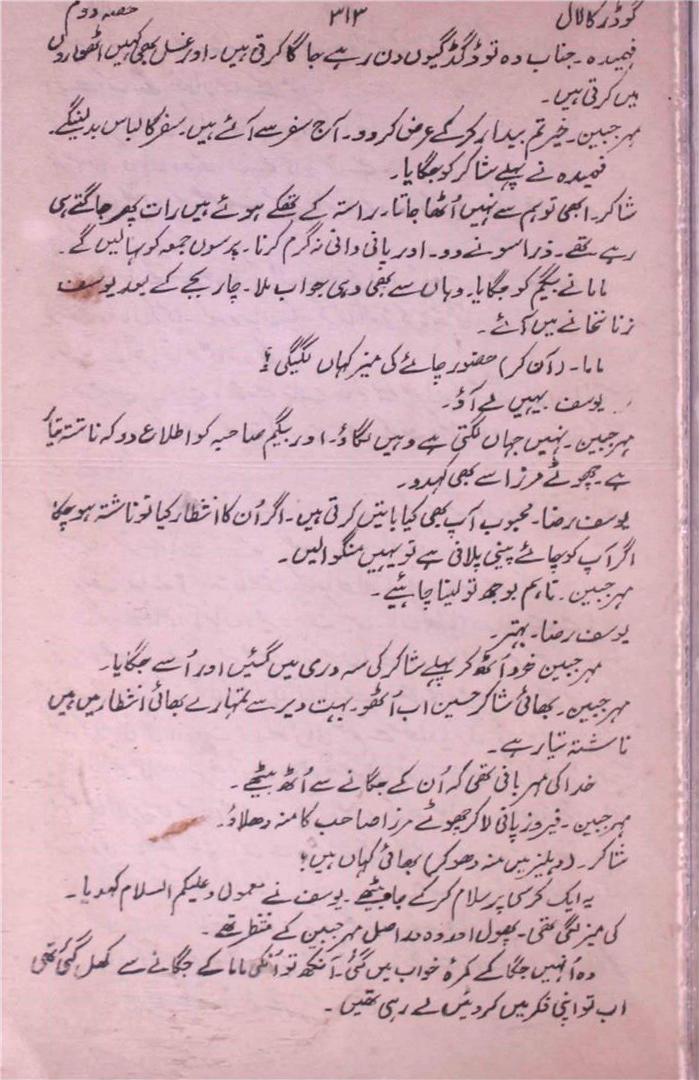 گودڑ کا لال ۳۱۳ حصہ دوم
فہمیدہ۔ جناب وہ تو ڈگڈگیوں دن رہے جاگا کرتی ہیں۔ اور غسل بھی کہیں اٹھارویں
میں کرتی ہیں۔
مہر جبین۔ خیر تم بیدار کر کے عرض کر دو۔ آج سفر سے آئے ہیں۔ سفر کا لباس بدلینگے۔
فہمیدہ نے پہلے شاکر کو جگایا۔
شاکر۔ ابھی تو ہم سے نہیں اُٹھا جاتا۔ راستہ کے تھکے ہوئے ہیں رات بھر جاگتے ہی
رہے تھے۔ ذرا سونے دو۔ اور پانی وانی نہ گرم کرنا۔ پرسوں جمعہ کو نہا لیں گے۔
مامانے بیگم کو جگایا۔ وہاں سے بھی وہی جواب ملا۔ چار بجے کے بعد یوسف
زنانخانے میں آئے۔
ماما۔ (آن کر) حضور چائے کی میز کہاں لگیگی؟
یوسف۔ یہیں لے آؤ۔
مہر جبین۔ نہیں جہاں لگتی ہے وہیں لگاؤ۔ اور بیگم صاحبہ کو اطلاع دو کہ ناشتہ تیار
ہے۔ چھوٹے مرزا سے بھی کہدو۔
یوسف رضا۔ محبوب آپ بھی کیا باتیں کرتی ہیں۔ اگر اُن کا انتظار کیا تو ناشتہ ہو چکا
اگر آپ کو چائے پینی پلانی ہے تو یہیں منگوا لیں۔
مہر جبین۔ تاہم پوچھ تو لینا چاہئیے۔
یوسف رضا۔ بہتر۔
مہر جبین خود اُٹھ کر پہلے شاکر کی سہ دری میں گئیں اور اُسے جگایا۔
مہر جبین۔ بھائی شاکر حسین اب اُٹھو۔ بہت دیر سے تمہارے بھائی انتظار میں ہیں
ناشتہ تیار ہے۔
خدا کی مہربانی تھی کہ اُن کے جگانے سے اُٹھ بیٹھے۔
مہر جبین۔ فیروز پانی لا کر چھوٹے مرزا صاحب کا منہ دھلاؤ۔
شاکر۔ (دہلیز میں منہ دھو کر) بھائی کہاں ہیں؟
یہ ایک کرسی پر سلام کر کے جا بیٹھے۔ یوسف نے معمول وعلیکم السلام کہدیا۔
کی میز لگی تھی۔ پھول اور وہ در اصل مہر جبین کے منتظر تھے۔
وہ اُنہیں جگا کے کمرۂ خواب میں گئی۔ آنکھ تو اُنکی ماما کے جگانے سے کھل گئی تھی
اب تو اپنی فکر میں کروٹیں لے رہی تھیں۔